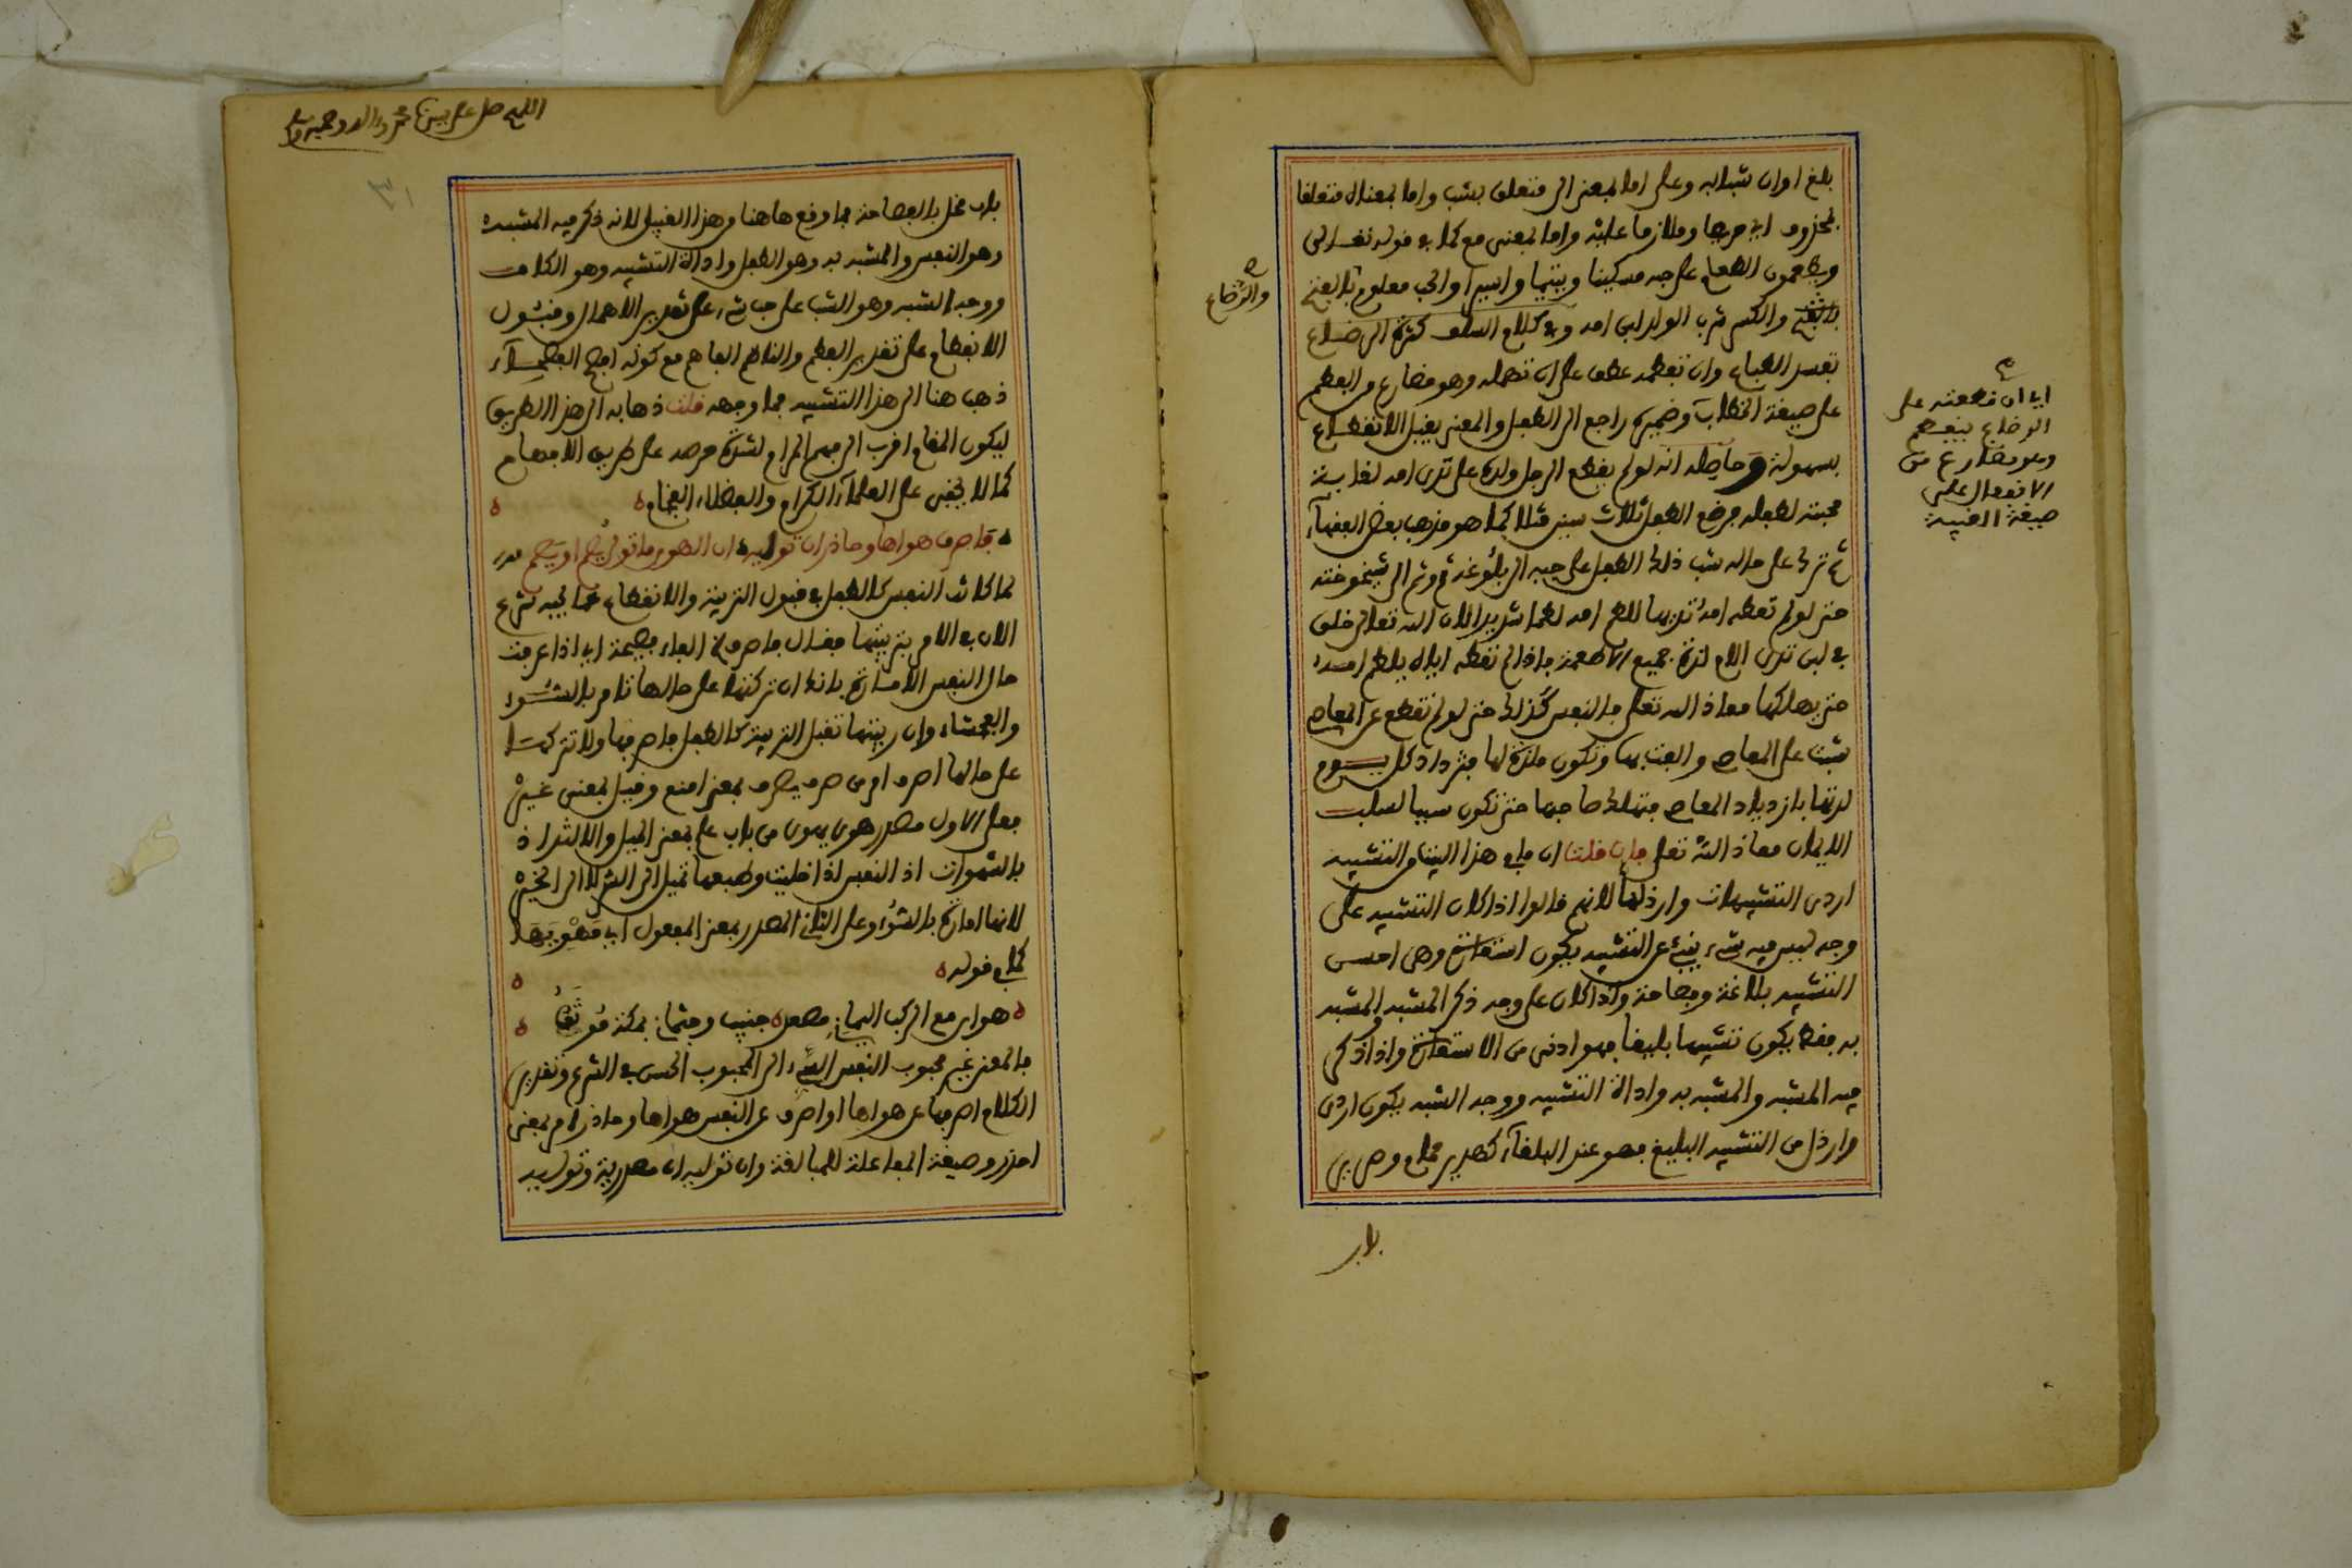 بلغ اوان شبابه وعلى اما بمعنى الى متعلق بشب واما بمعناه متعلقا
بمحذوف اي حريصا وملازما عليه واما بمعنى مع كما في قوله تعالى
ويطعمون الطعام على حبه مسكينا ويتيما واسيرا والحب معلوم بالفتح
والرضاع
بالفتح والكسر شرب الولد لبن امه وفي كلام السلف كثرة الرضاع
تفسد الطباع وان تفطمه عطف على ان تهمله وهو مضارع من الفطم
على صيغة الخطاب وضميره راجع الى الطفل والمعنى يقبل الانفطام
اي ان فطمته على
الرضاع ينفطم
وهو مضارع من
الانفعال على
صيغة الغيبة
بسهولة وحاصله انه لو لم يفطم الرجل ولده على ثدي امه لغاية
محبته لطفله فرضع الطفل ثلاث سنين مثلا كما هو مذهب بعض الفقهاء
ثم ترك على حاله شب ذلك الطفل على حبه الى بلوغه ثم وثم الى شيخوخته
حتى لو لم تعطه امه ثديها للطم امه لطما شديدا لان الله تعالى خلق
في لبن ثدي الام لذة جميع الاطعمة فاذا لم تفطه اياه يلطم امه
حتى يهلكها معاذ الله تعالى فالنفس كذلك حتى لو لم تقطع عن المعاصي
شبت على المعاصي والفت بها وتكون ملذة لها فتزداد كل يوم
لذتها بازدياد المعاصي فتهلك صاحبها حتى تكون سببا لسلب
الايمان معاذ الله تعالى فان قلت ان ما في هذا البيت من التشبيه
اردى التشبيهات وارذلها لانهم قالوا اذا كان التشبيه على
وجه ليس فيه شيء ينبئ عن التشبيه يكون استعارة وهي احسن
التشبيه بلاغة وفصاحة واذا كان على وجه ذكر المشبه والمشبه
به فقط يكون تشبيها بليغا فهو ادنى من الاستعارة واذا ذكر
فيه المشبه والمشبه به واداة التشبيه ووجه الشبه يكون اردى
وارذل من التشبيه البليغ فهو عند البلغاء كهدير حمام وصرير
باب
اللهم صل على سيدنا محمد واله وصحبه وسلم
٣١
باب مخل بالفصاحة فما وقع هاهنا من هذا القبيل لانه ذكر فيه المشبه
وهو النفس والمشبه به وهو الطفل واداة التشبيه وهو الكاف
ووجه الشبه وهو الشب على حب شيء على تقدير الاهمال وقبول
الانفطام على تقدير الفطم والناظم الفاهم مع كونه افصح الفصحاء
ذهب هنا الى هذا التشبيه فما وجهه قلت ذهابه الى هذا الطريق
ليكون المقام اقرب الى فهم المرام لشدة حرصه على طريق الافهام
كما لا يخفى على العلماء الكرام والفضلاء الفخام
فاصرف هواها وحاذر ان توليه ان الهوى ما تولى يصم او يصم
لما كانت النفس كالطفل في قبول التربية والانفطام عما يحبه شرع
الان في الامر بتربيتها فقال فاصرف الفاء فصيحة اي اذا عرفت
حال النفس الامارة بانك ان تركتها على حالها تامر بالسوء
والفحشاء وان ربيتها تقبل التربية كالطفل فاصرفها ولا تتركها
على حالها اصرف امر من صرف يصرف بمعنى امنع وقيل بمعنى غير
فعلى الاول مصدر هوى يهوى من باب علم بمعنى الميل والالتذاذ
بالشهوات اذ النفس اذا خليت وطبعها تميل الى الشر لا الى الخير
لانها امارة بالسوء وعلى الثاني المصدر بمعنى المفعول اي مهويها
كما في قوله
هواي مع الركب اليمانين مصعد جنيب وجثماني بمكة موثق
فالمعنى غير محبوب النفس السيء الى المحبوب الحسن في الشرع وتقدير
الكلام اصرفها عن هواها او اصرف عن النفس هواها وحاذر امر بمعنى
احذر وصيغة المفاعلة للمبالغة وان توليه ان مصدرية وتوليه